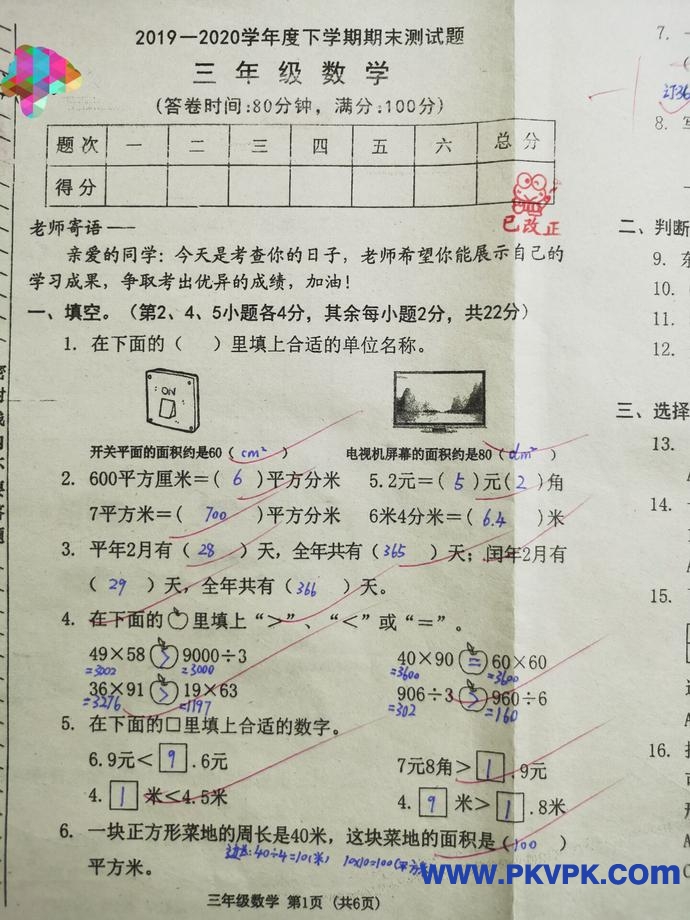 2019—2020学年度下学期期末测试题
三年级数学
(答卷时间:80分钟，满分:100分)
题次 一 二 三 四 五 六 总分
得分
已改正
老师寄语——
亲爱的同学：今天是考查你的日子，老师希望你能展示自己的
学习成果，争取考出优异的成绩，加油！
一、填空。（第2、4、5小题各4分，其余每小题2分，共22分）
1. 在下面的（ ）里填上合适的单位名称。
ON
开关平面的面积约是60（cm²） 电视机屏幕的面积约是80（dm²）
2. 600平方厘米＝（6）平方分米 5.2元＝（5）元（2）角
7平方米＝（700）平方分米 6米4分米＝（6.4）米
3. 平年2月有（28）天，全年共有（365）天；闰年2月有
（29）天，全年共有（366）天。
4. 在下面的 里填上“＞”、“＜”或“＝”。
49×58 > 9000÷3 40×90 = 60×60
=3002 =3000 =3600 =3600
36×91 > 19×63 906÷3 > 960÷6
=3276 =1197 =302 =160
5. 在下面的□里填上合适的数字。
6.9元＜9.6元 7元8角＞1.9元
4.1米＜4.5米 4.9米＞1.8米
6. 一块正方形菜地的周长是40米，这块菜地的面积是（100）
边长:40÷4=10(米) 10×10=100(平方米)
平方米。
三年级数学 第1页 (共6页)
7.
8.
二、判断
9.
10.
11.
12.
三、选择
13.
14.
15.
16.
www.PKVPK.com